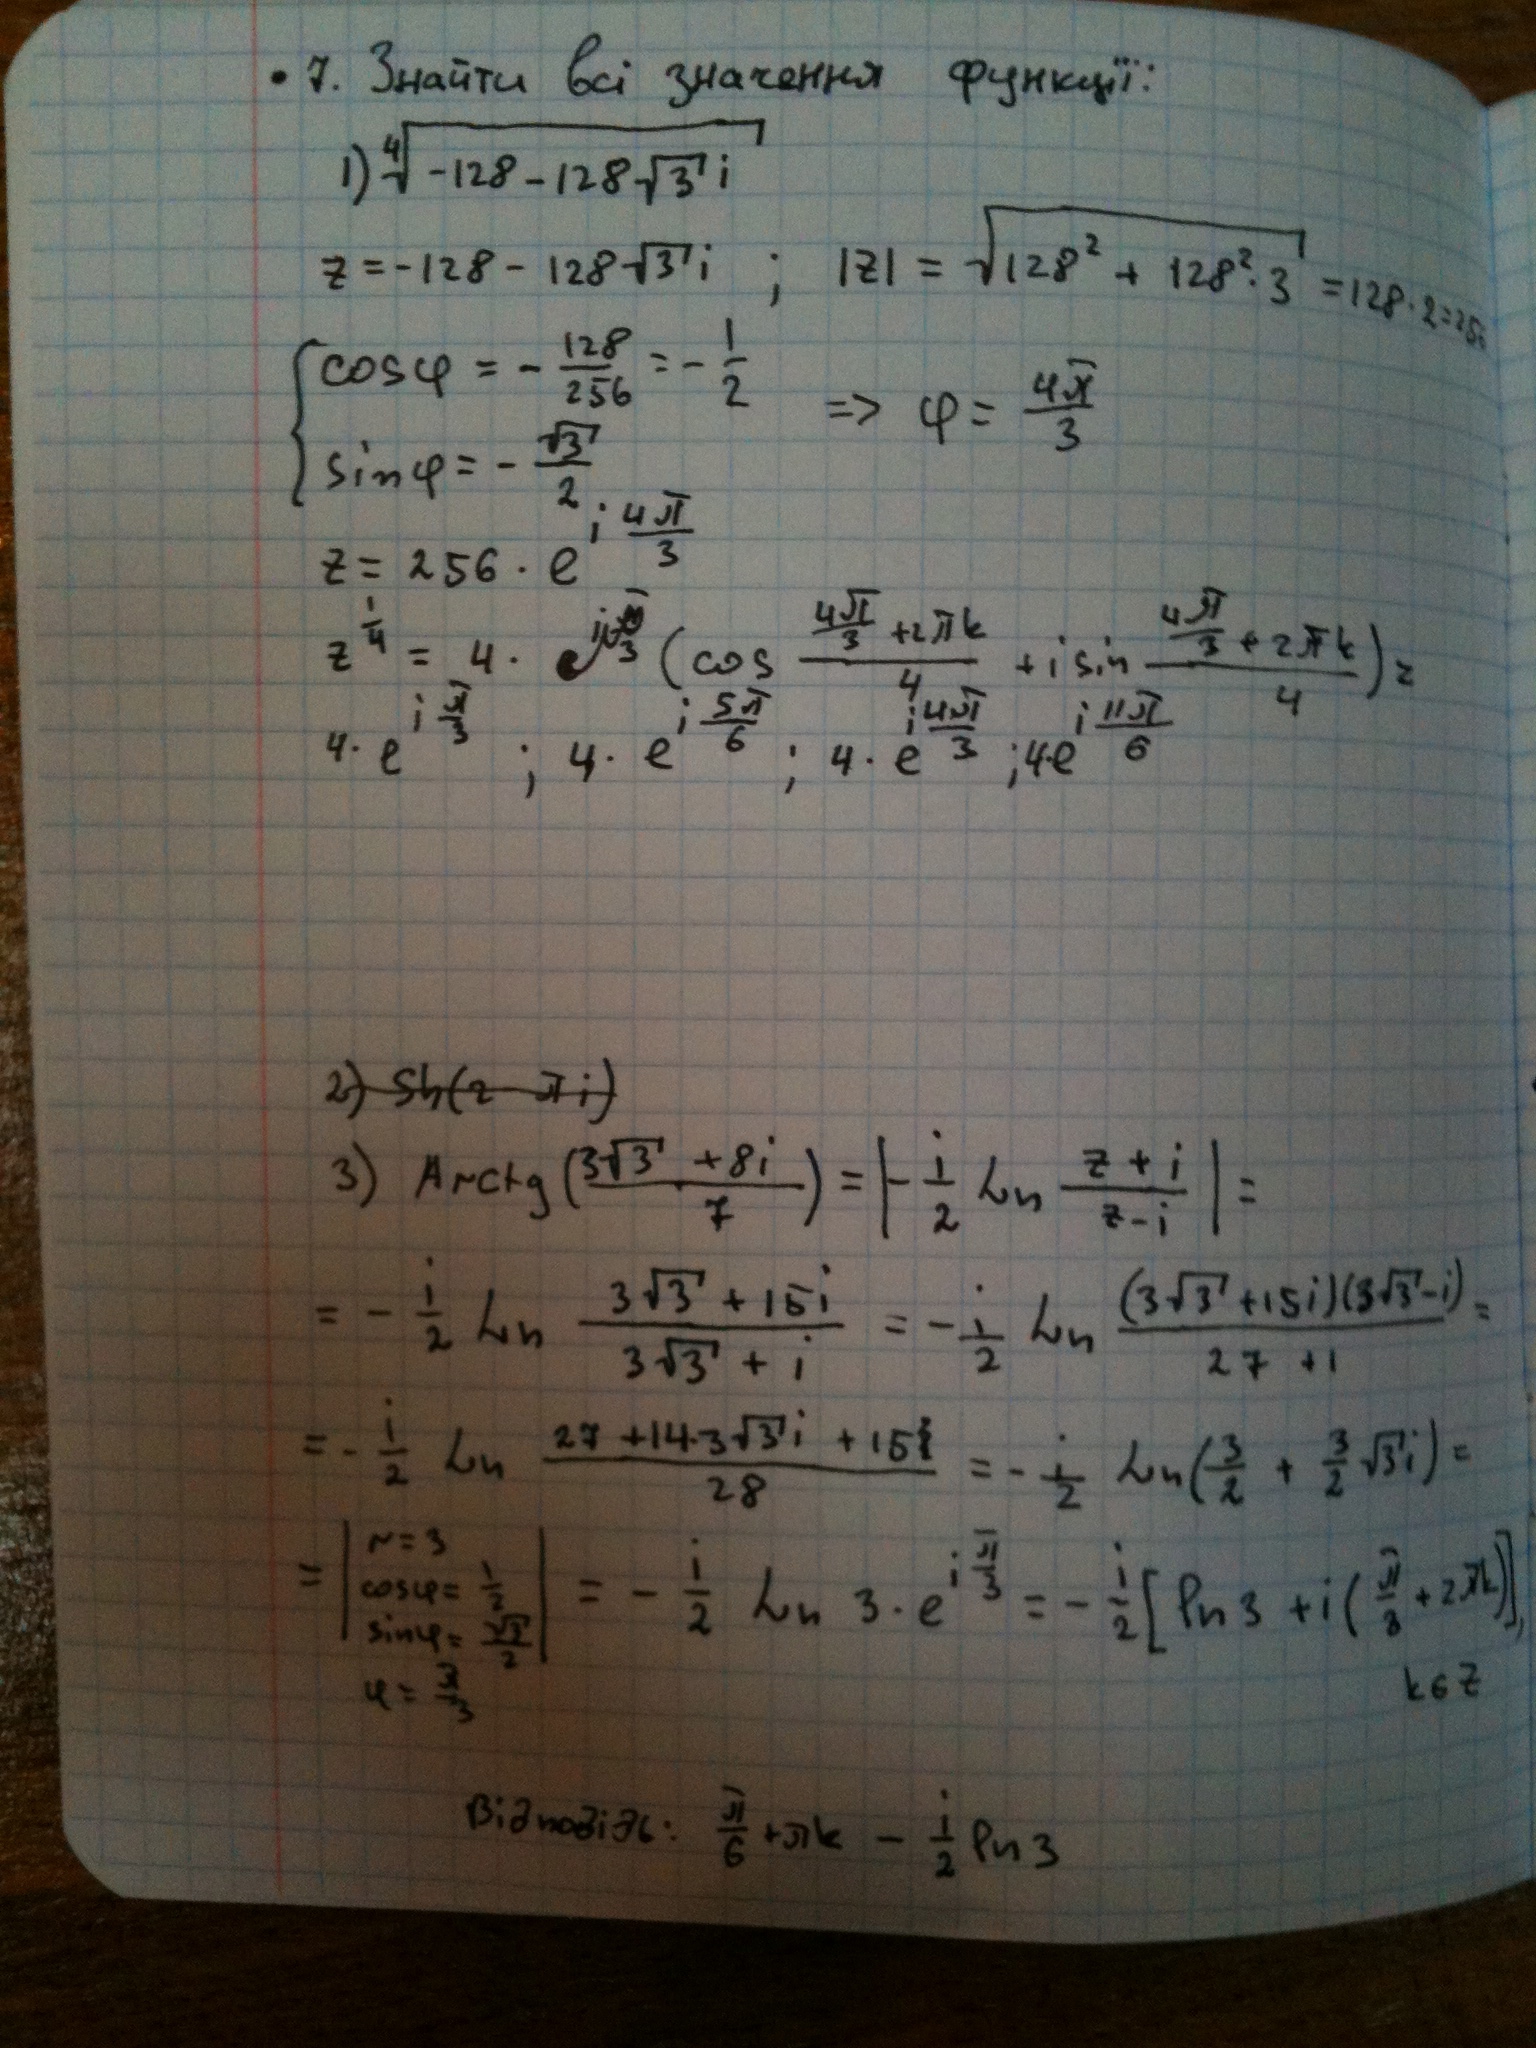 • 7. Знайти всі значення функції:
1) ⁴√(-128 - 128√3 i)
z = -128 - 128√3 i ; |z| = √(128² + 128²·3) = 128·2 = 256
{ cosφ = - 128/256 = - 1/2
sinφ = - √3/2 => φ = 4π/3
z = 256 · e^(i 4π/3)
z^(1/4) = 4 · (cos (4π/3 + 2πk)/4 + i sin (4π/3 + 2πk)/4) =
4· e^(i π/3) ; 4· e^(i 5π/6) ; 4· e^(i 4π/3) ; 4·e^(i 11π/6)
2) Sh(2 - πi)
3) Arctg ((3√3 + 8i)/7) = | - i/2 Ln (z + i)/(z - i) | =
= - i/2 Ln (3√3 + 15i)/(3√3 + i) = - i/2 Ln ((3√3 + 15i)(3√3 - i))/(27 + 1) =
= - i/2 Ln (27 + 14·3√3 i + 15)/28 = - i/2 Ln(3/2 + 3/2 √3 i) =
= | r = 3
cosφ = 1/2
sinφ = √3/2
φ = π/3 | = - i/2 Ln 3· e^(i π/3) = - i/2 [ln 3 + i(π/3 + 2πk)],
k ∈ Z
Відповідь: π/6 + πk - i/2 ln 3